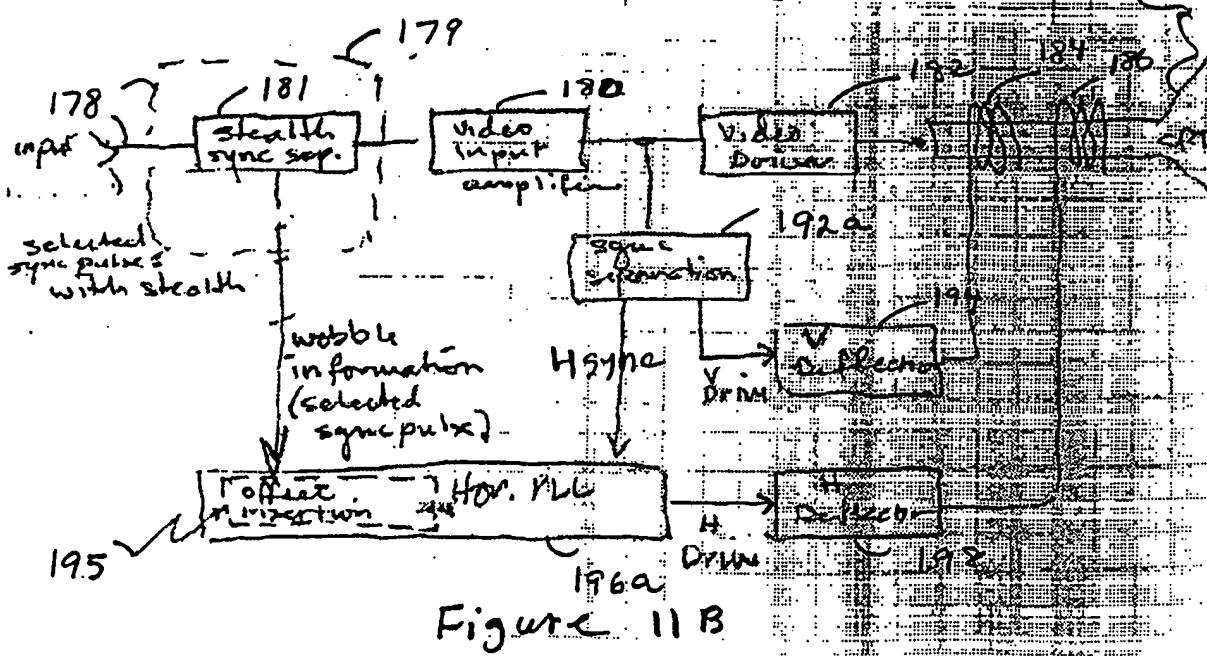 179
178
181
180
182
184
186
input
stealth
sync sep.
video
input
amplifier
Video
Driver
CRT
selected
sync pulses
with stealth
192a
sync
separation
wobble
information
(selected
sync pulse)
H sync
V
Drive
194
V
Deflection
offset
insertion
Hor. PLL
H
Drive
H
Deflection
195
196a
198
Figure 11B